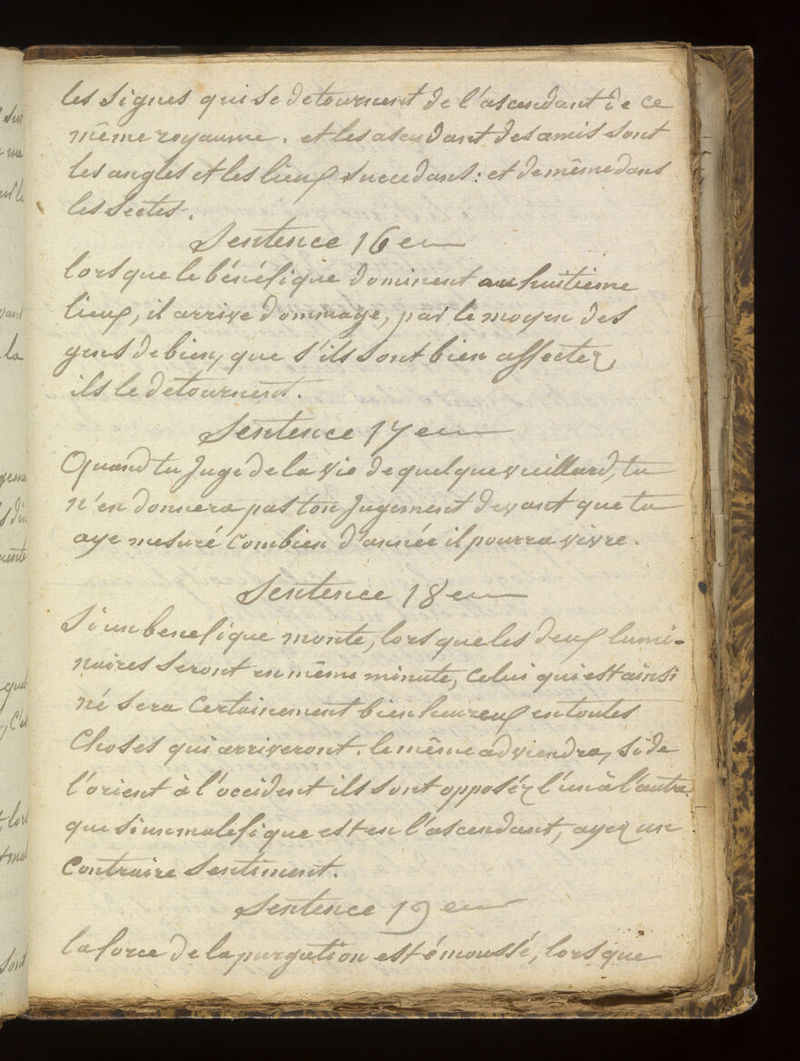 les signes qui se detournent de l'ascendant de ce
même royaume. et les ascendant des amis sont
les angles et les lieux succedans: et de même dans
les sectes.
Sentence 16e
lorsque le bénéfique dominent au huitieme
lieux, il arrive dommage, par le moyen des
gens de bien, que s'ils sont bien affectez
ils le detournent.
Sentence 17e
Quand tu juge de la vie de quelque vieillard, tu
n'en donnera pas ton jugement devant que tu
aye mesuré combien d'année il pourra vivre.
Sentence 18e
Si un benefique monte, lors que les deux lumi-
naires seront en même minute, celui qui est ainsi
né sera certainement bienheureux en toutes
choses qui arriveront. le même adviendra, si de
l'orient à l'occident ils sont opposéz l'un à l'autre
que si un malefique est en l'ascendant, ayez un
contraire sentiment.
Sentence 19e
la force de la purgation est émoussé, lorsque